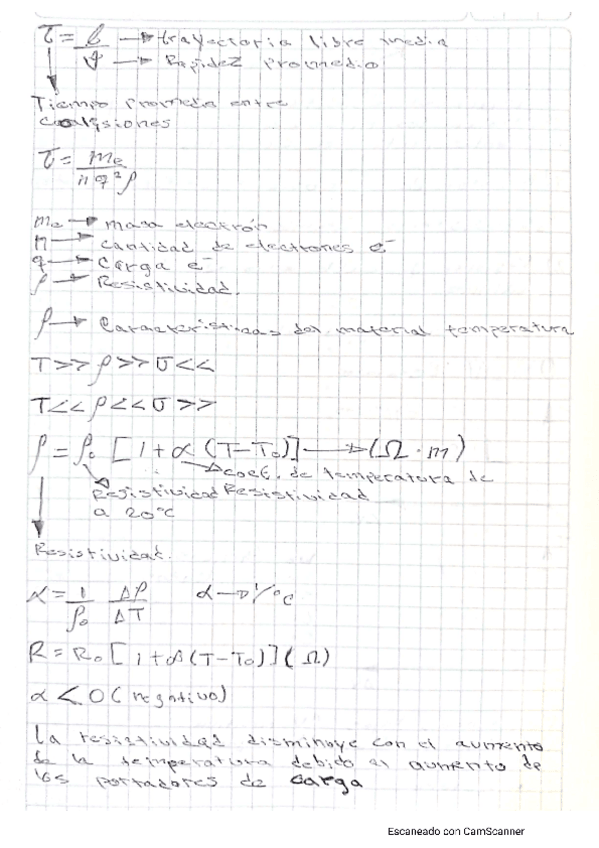 τ = l/v → trayectoria libre media
→ Rapidez promedio
Tiempo promedio entre
colisiones
τ = me / n q² ρ
me → masa electrón
n → cantidad de electrones e⁻
q → Carga e⁻
ρ → Resistividad.
ρ → Características del material temperatura
T>> ρ>> σ<<
T<< ρ<< σ>>
ρ = ρ₀ [1+α(T-T₀)] → (Ω·m)
coef. de temperatura de
Resistividad Resistividad
a 20°C
Resistividad.
α = 1/ρ₀ Δρ/ΔT α → 1/°C
R = R₀ [1+α(T-T₀)] (Ω)
α < 0 (negativo)
La resistividad disminuye con el aumento
de la temperatura debido al aumento de
los portadores de carga
Escaneado con CamScanner